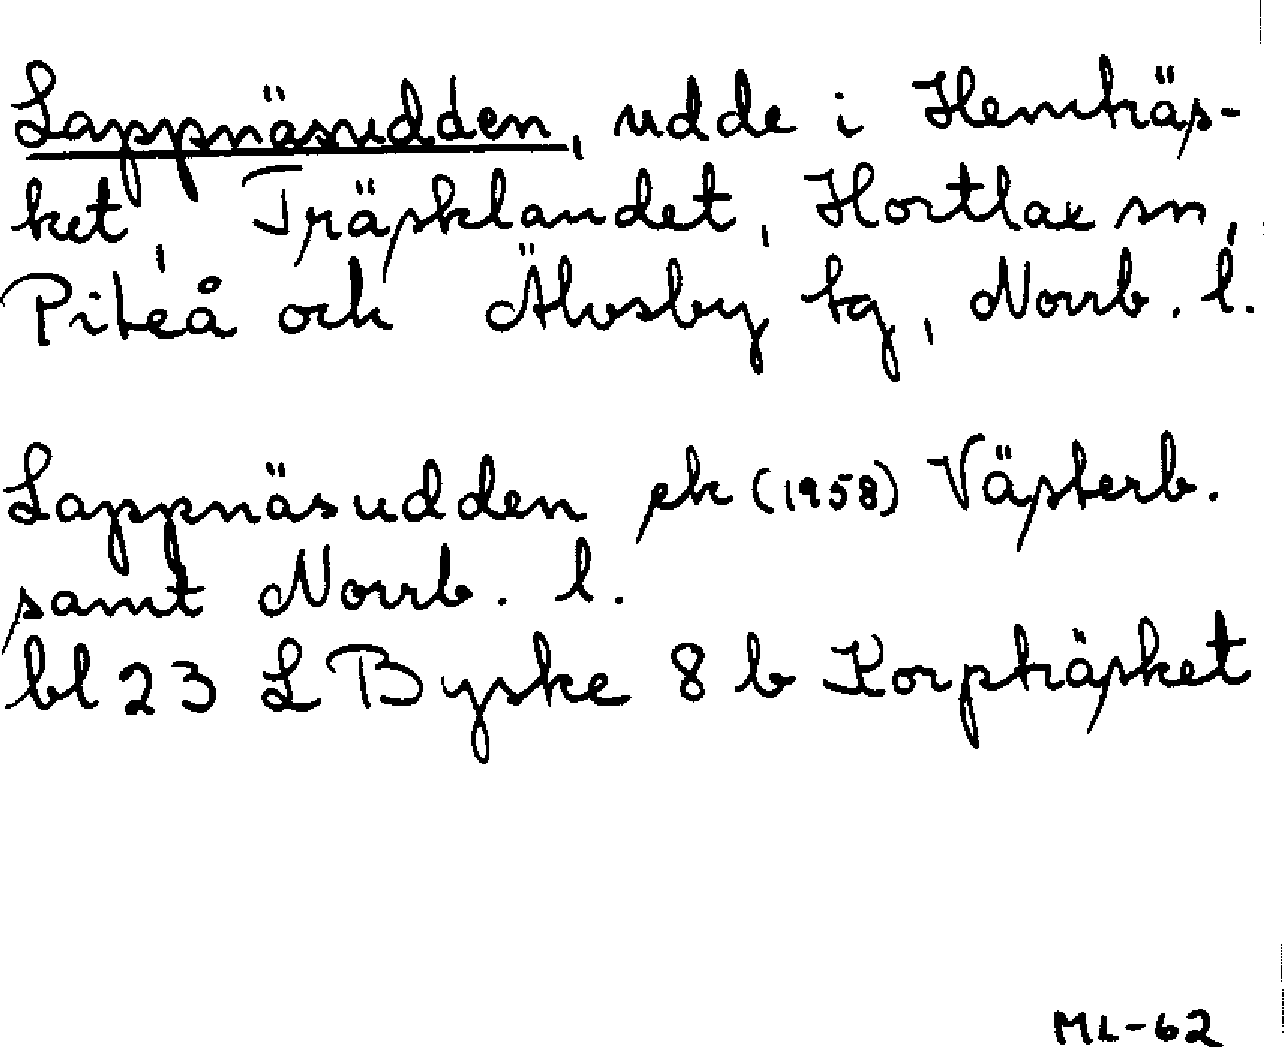 Lappnäsudden, udde i Hemträs-
ket, Träsklandet, Hortlax sn,
Piteå och Älvsby tg, Norrb. l.
Lappnäsudden ek (1958) Västerb.
samt Norrb. l.
bl 23 L Byske 8 b Korpträsket
ML-62